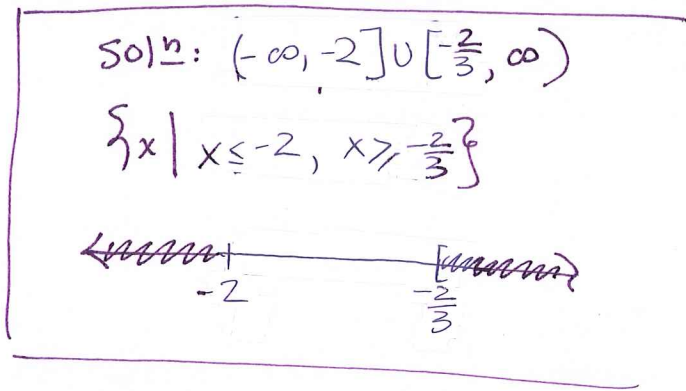 soln: (-∞, -2] ∪ [-2/3, ∞)
{x | x ≤ -2, x ≥ -2/3}
-2 -2/3